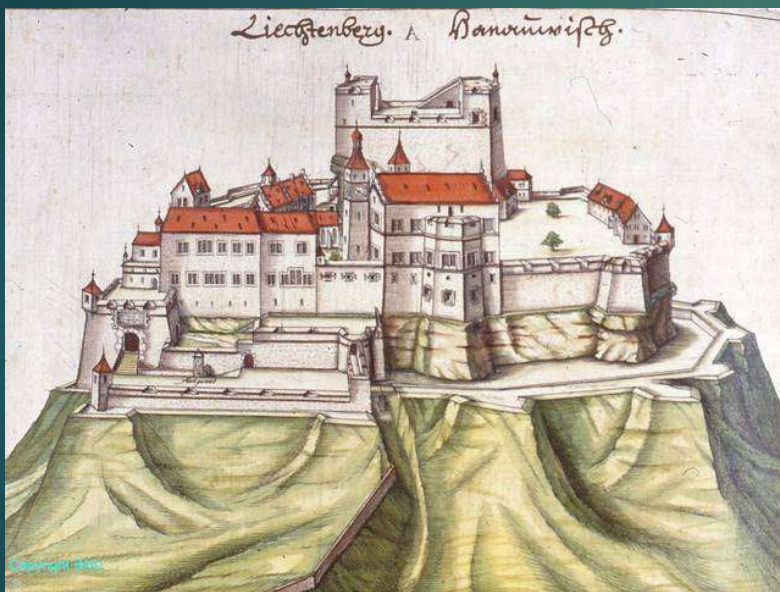 Liechtenberg. A Hanauwisch.
Copyright